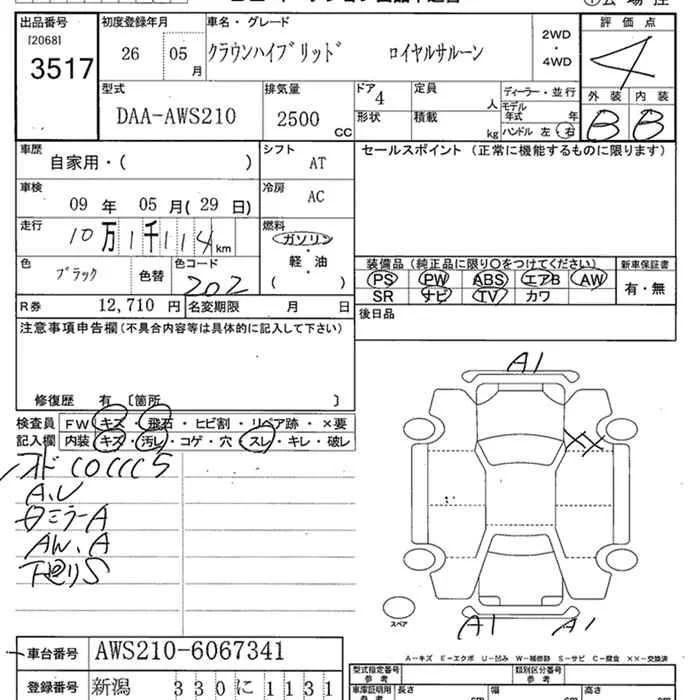 出品番号 初度登録年月 車名・グレード 評価点
[2068]
3517
26 05月 クラウンハイブリッド ロイヤルサルーン 2WD・4WD 4
型式 排気量 ドア 4 定員 人 ディーラー・並行 外装 内装
DAA-AWS210 2500 CC 形状 積載 kg モデル年式 年 B B
ハンドル 左・右
車歴 自家用・( ) シフト AT セールスポイント (正常に機能するものに限ります)
車検 09年 05月(29日) 冷房 AC
走行 10万1千114km 燃料 ガソリン・軽・油 ( )
色 ブラック 色替 色コード 202
装備品(純正品に限り〇をつけてください) 新車保証書
PS PW ABS エアB AW 有・無
SR ナビ TV カワ
R券 12,710円 名変期限 月 日 後日品
注意事項申告欄(不具合内容等は具体的に記入して下さい)
修復歴 有 〔箇所 〕
検査員 FW キズ・飛石・ヒビ割・リペア跡・×要
記入欄 内装 キズ・汚レ・コゲ・穴・スレ・キレ・破レ
A.U
AW.A
A1
XX
スペア
A1 A1
A-キズ E-エクボ U-凹み W-補修跡 S-サビ C-腐食 XX-交換済
車台番号 AWS210-6067341
登録番号 新潟 330 に 1131
型式指定番号 参考 類別区分番号 参考
車庫証明用 長さ 幅 高さ